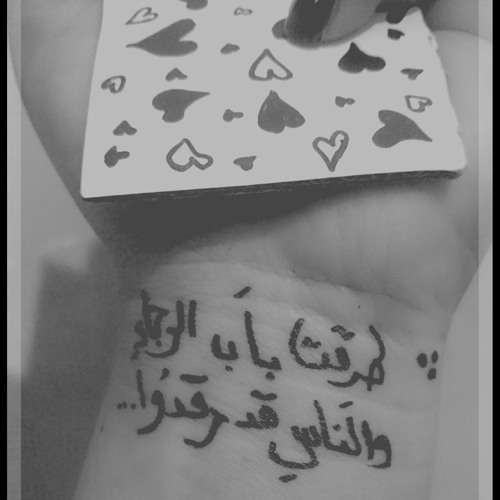 طرقتُ بابَ الرجاءِ
والنَاسِ قد رقدُوا...